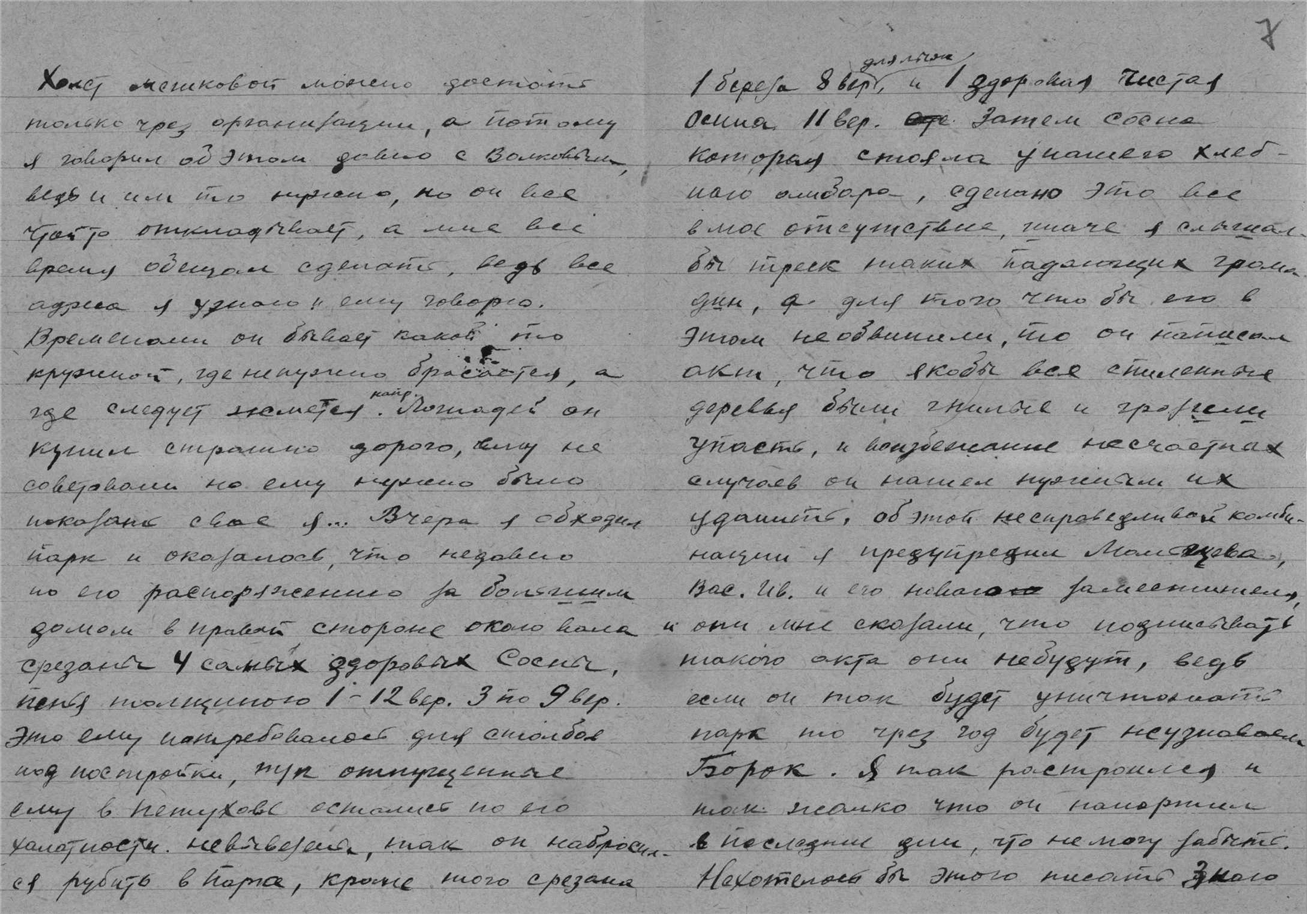 7
Холст мешковой можно достать
только чрез организации, а потому
я говорил об этом давно с Волковым,
ведь и им то нужно, но он все
что то откладывает, а мне все
время обещал сделать, ведь все
адреса я узнаю и ему говорю.
Временами он бывает какой то
кружной, где ненужно бросается, а
где следует жмется. Лошадей он
купил страшно дорого, ему не
советовали но ему нужно было
показать свое я... Вчера я обходил
парк и оказалось, что недавно
по его распоряжению за большим
домом в правой стороне около вала
срезаны 4 самых здоровых Сосны,
пенья толщиною 1 - 12 вер. 3 по 9 вер.
Это ему потребовалось для столбов
под постройки, отпущенные
ему в Петухове остались по его
халатности невывезены, так он набросил-
ся рубить в Парке, кроме того срезана
1 береза 8 вер., и 1 здоровая чистая
Осина 11 вер. Затем сосна
которая стояла у нашего хлеб-
ного амбара, сделано это все
в мое отсутствие, иначе я слышал-
бы треск таких падающих грома
дин, а для того что бы его в
этом не обвинили, то он написал
акт, что якобы вся спиленные
деревья были гнилые и грозили
упасть, и воизбежание несчастных
случаев он нашел нужным их
удалить, об этой несправедливой комби-
нации я предупредил
Вас. Ив. и его нового заместителя,
и они мне сказали, что подписывать
такого акта они небудут, ведь
если он так будет уничтожать
парк то чрез год будет неузнаваем
Борок. Я так растроился и
так жалко что он напортил
в последние дни, что не могу забыть.
Нехотелось бы этого писать